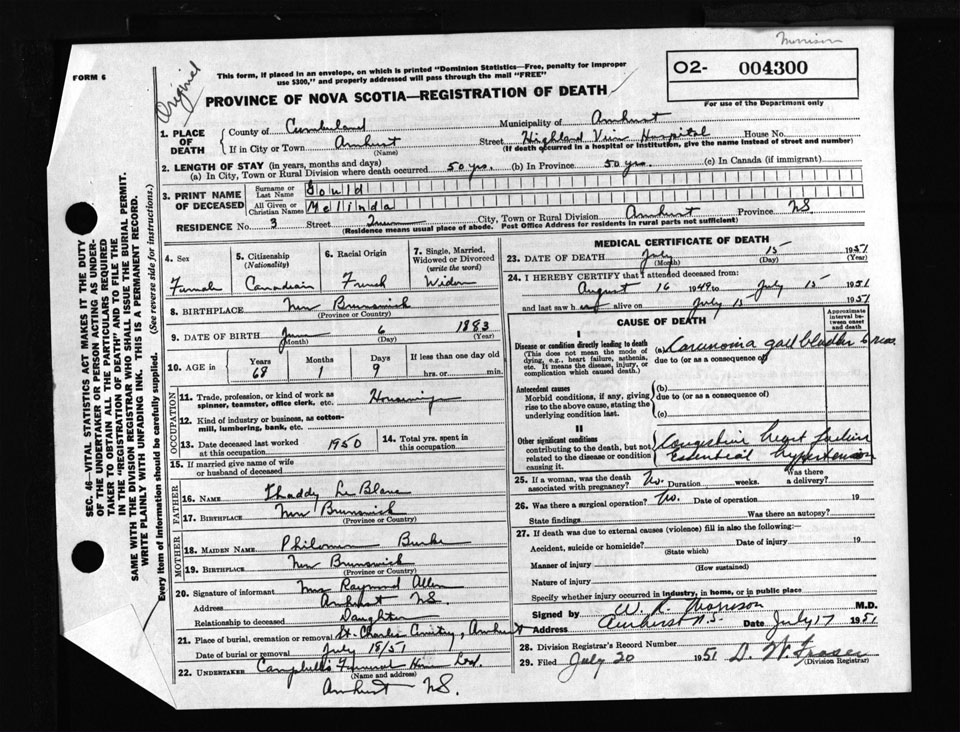 Morrison
FORM 6
Original
This form, if placed in an envelope, on which is printed "Dominion Statistics—Free, penalty for improper
use $300," and properly addressed will pass through the mail "FREE"
O2- 004300
For use of the Department only
PROVINCE OF NOVA SCOTIA—REGISTRATION OF DEATH
1. PLACE OF DEATH
County of Cumberland Municipality of Amherst
If in City or Town Amherst (Name) Street Highland View Hospital House No.
(If death occurred in a hospital or institution, give the name instead of street and number)
2. LENGTH OF STAY (in years, months and days)
(a) In City, Town or Rural Division where death occurred 50 yrs. (b) In Province 50 yrs. (c) In Canada (if immigrant)
3. PRINT NAME OF DECEASED
Surname or Last Name Gould
All Given or Christian Names Mellinda
RESIDENCE No. 3 Street City, Town or Rural Division Amherst Province N.S.
(Residence means usual place of abode. Post Office Address for residents in rural parts not sufficient)
4. Sex Female
5. Citizenship (Nationality) Canadian
6. Racial Origin French
7. Single, Married, Widowed or Divorced (write the word) Widow
8. BIRTHPLACE New Brunswick
(Province or Country)
9. DATE OF BIRTH June 6 1883
(Month) (Day) (Year)
10. AGE in Years 68 Months 1 Days 9 If less than one day old hrs. or min.
OCCUPATION
11. Trade, profession, or kind of work as spinner, teamster, office clerk, etc. Housewife
12. Kind of industry or business, as cotton-mill, lumbering, bank, etc.
13. Date deceased last worked at this occupation 1950
14. Total yrs. spent in this occupation
15. If married give name of wife or husband of deceased
FATHER
16. NAME Thaddy LeBlanc
17. BIRTHPLACE New Brunswick
(Province or Country)
MOTHER
18. MAIDEN NAME Philomen Burke
19. BIRTHPLACE New Brunswick
(Province or Country)
20. Signature of informant Mrs Raymond Allen
Address Amherst N.S.
Relationship to deceased Daughter
21. Place of burial, cremation or removal St. Charles Cemetry, Amherst
Date of burial or removal July 18/51
22. UNDERTAKER Campbell's Funeral Home Ltd.
(Name and address)
Amherst N.S.
MEDICAL CERTIFICATE OF DEATH
23. DATE OF DEATH July 15 1951
(Month) (Day) (Year)
24. I HEREBY CERTIFY that I attended deceased from:
August 16 1949 to July 15 1951
and last saw her alive on July 15 1951
CAUSE OF DEATH
Approximate interval between onset and death
I
Disease or condition directly leading to death
(This does not mean the mode of dying, e.g., heart failure, asthenia, etc. It means the disease, injury, or complication which caused death.)
(a) Carcinoma gall bladder 6 mos
due to (or as a consequence of)
Antecedent causes
Morbid conditions, if any, giving rise to the above cause, stating the underlying condition last.
(b)
due to (or as a consequence of)
(c)
II
Other significant conditions
contributing to the death, but not related to the disease or condition causing it.
Congestive heart failure
Essential hypertension
25. If a woman, was the death associated with pregnancy? No. Duration weeks. Was there a delivery?
26. Was there a surgical operation? No. Date of operation 19
State findings Was there an autopsy?
27. If death was due to external causes (violence) fill in also the following:—
Accident, suicide or homicide? Date of injury 19
(State which)
Manner of injury
(How sustained)
Nature of injury
Specify whether injury occurred in industry, in home, or in public place
Signed by W. R. Morrison M.D.
Address Amherst N.S. Date July 17 1951
28. Division Registrar's Record Number
29. Filed July 20 1951 D. W. Fraser
(Division Registrar)
SEC. 46—VITAL STATISTICS ACT MAKES IT THE DUTY
OF THE UNDERTAKER OR PERSON ACTING AS UNDER-
TAKER TO OBTAIN ALL THE PARTICULARS REQUIRED
IN THE "REGISTRATION OF DEATH" AND TO FILE THE
SAME WITH THE DIVISION REGISTRAR WHO SHALL ISSUE THE BURIAL PERMIT.
WRITE PLAINLY WITH UNFADING INK. THIS IS A PERMANENT RECORD.
Every item of information should be carefully supplied. (See reverse side for instructions.)